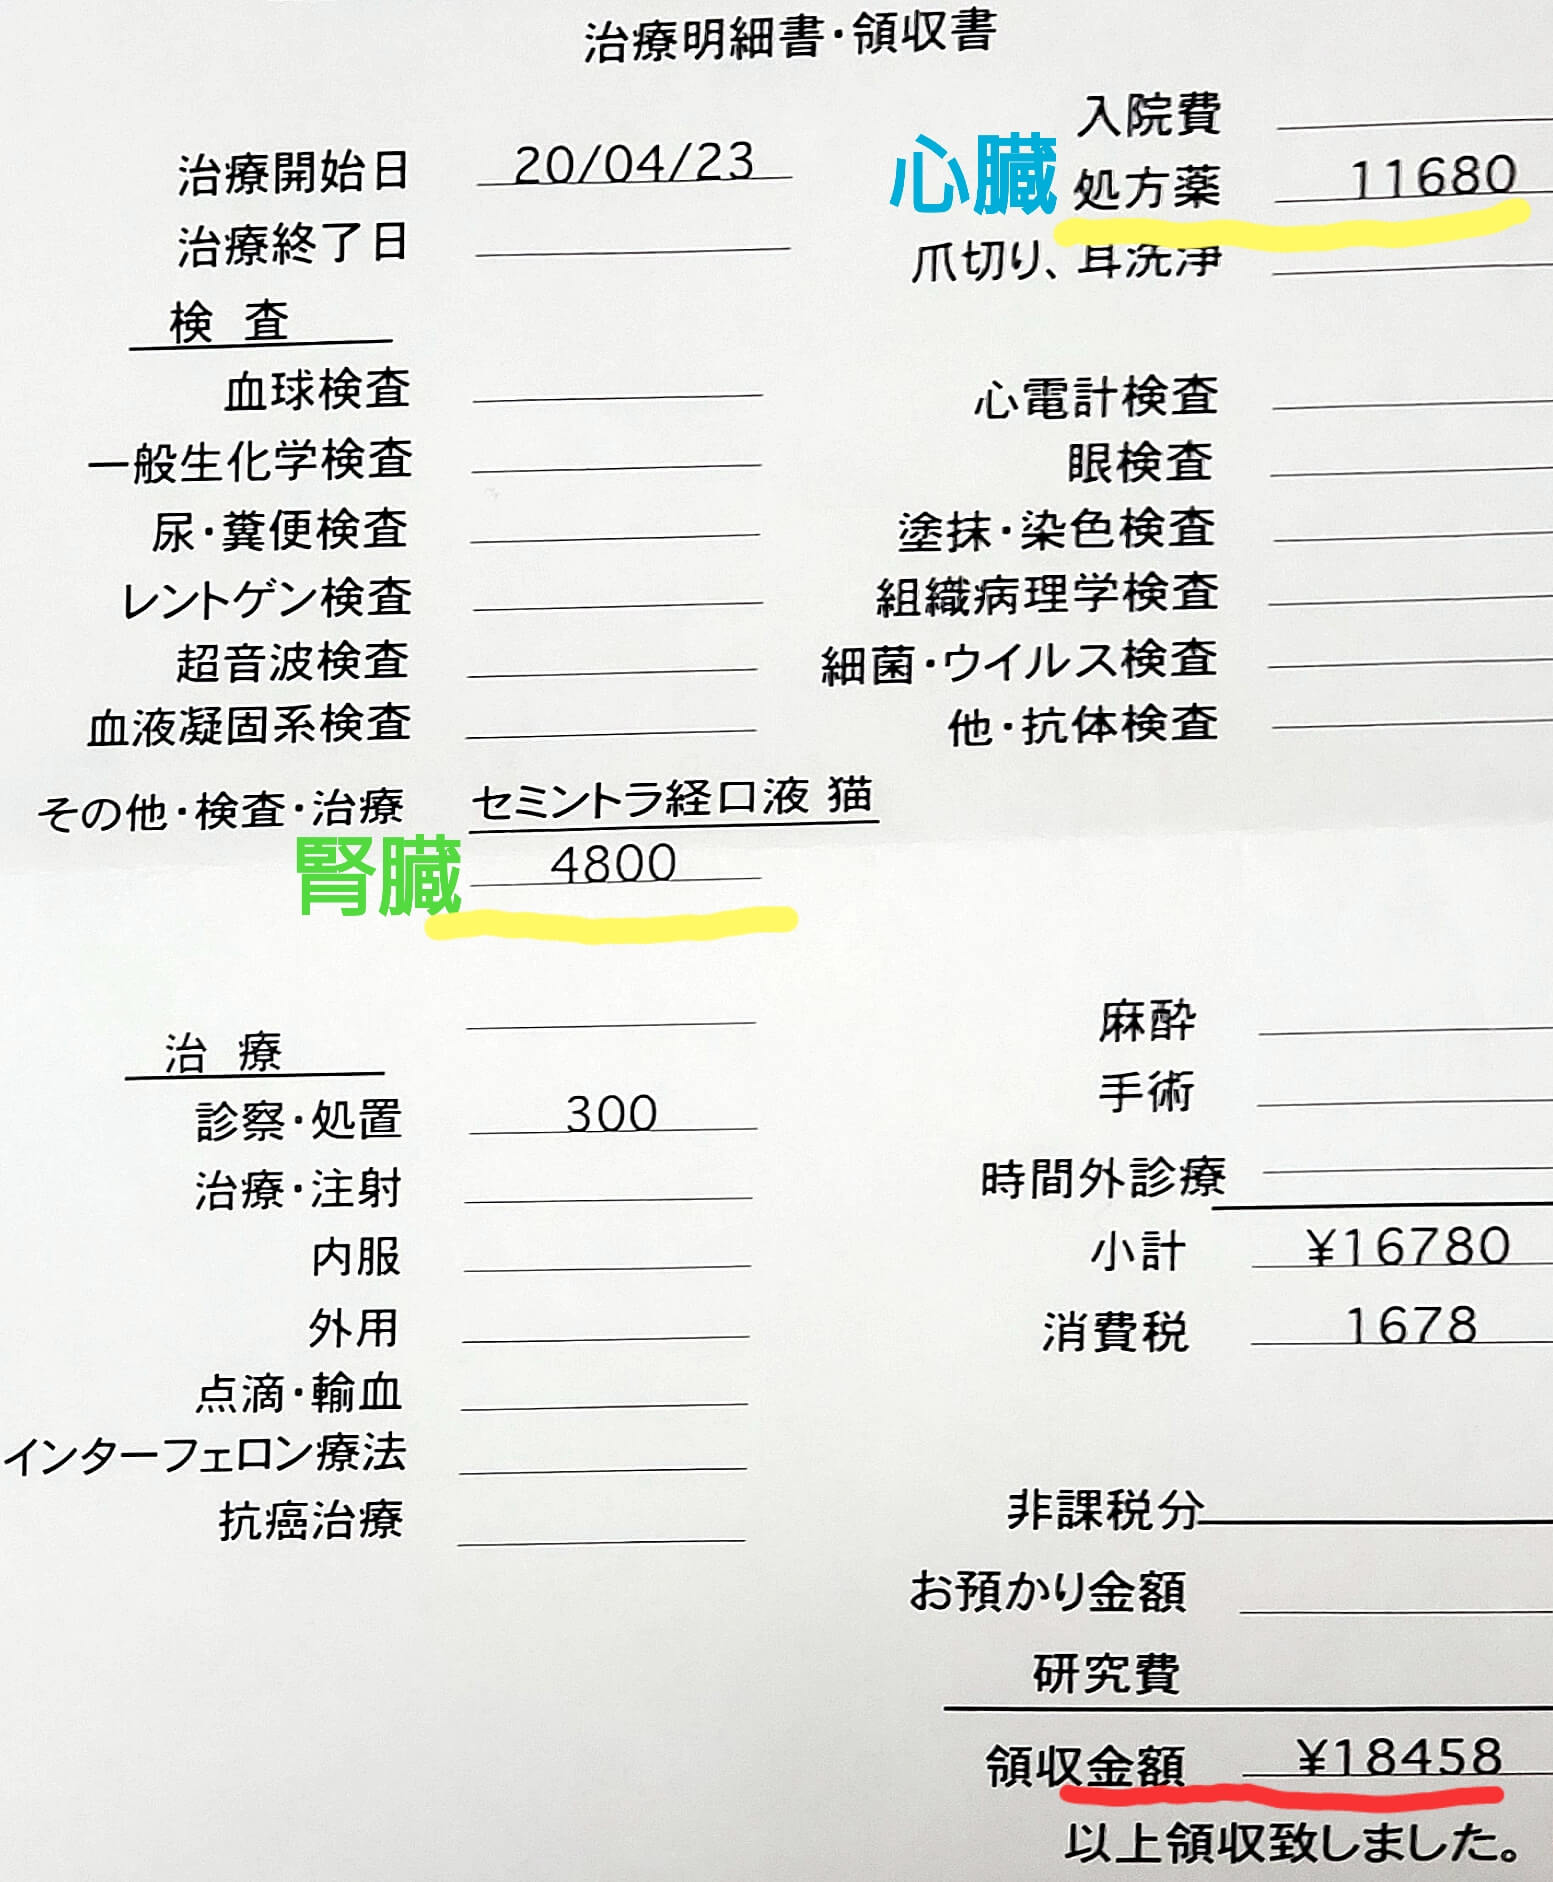 治療明細書・領収書
治療開始日 20/04/23
治療終了日
検 査
血球検査
一般生化学検査
尿・糞便検査
レントゲン検査
超音波検査
血液凝固系検査
その他・検査・治療 セミントラ経口液 猫
腎臓 4800
入院費
心臓 処方薬 11680
爪切り、耳洗浄
心電計検査
眼検査
塗抹・染色検査
組織病理学検査
細菌・ウイルス検査
他・抗体検査
治 療
診察・処置 300
治療・注射
内服
外用
点滴・輸血
インターフェロン療法
抗癌治療
麻酔
手術
時間外診療
小計 ¥16780
消費税 1678
非課税分
お預かり金額
研究費
領収金額 ¥18458
以上領収致しました。